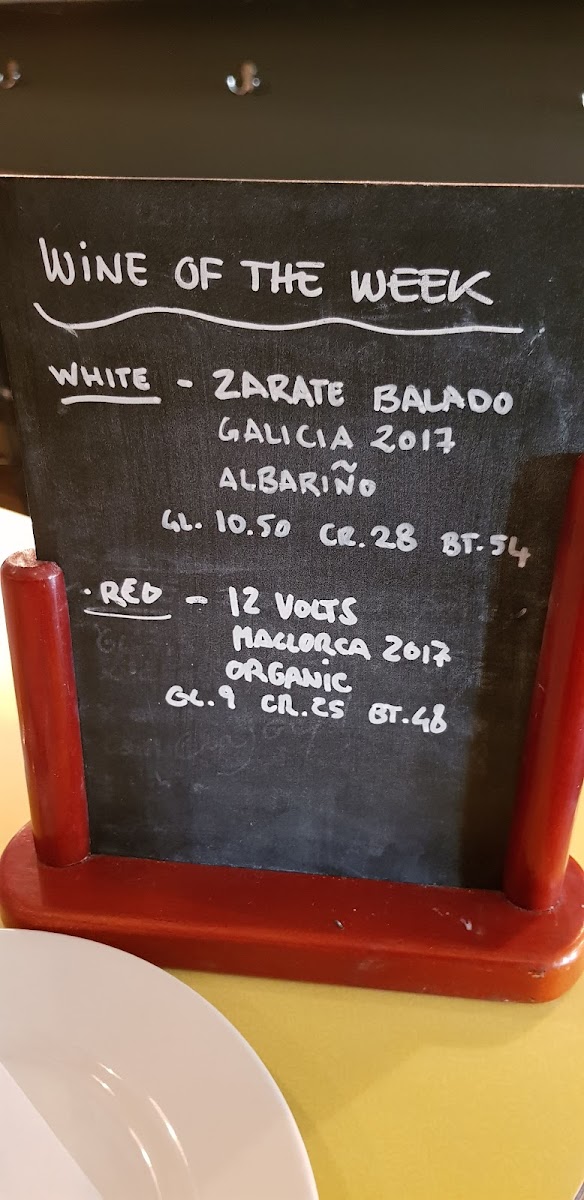 WINE OF THE WEEK
WHITE - ZARATE BALADO
GALICIA 2017
ALBARIÑO
GL. 10.50 CR. 28 BT. 54
. RED - 12 VOLTS
MALLORCA 2017
ORGANIC
GL. 9 CR. 25 BT. 48